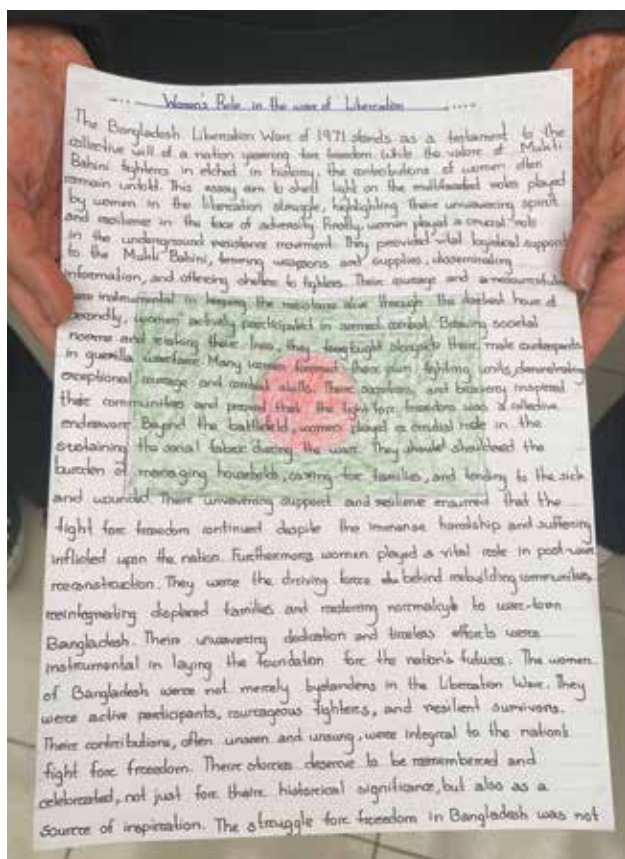 Women's Role in the ware of Liberation
The Bangladesh Liberation Ware of 1971 stands as a testament to the
collective will of a nation yearning fore freedom. While the valore of Mukti
Bahini fighters in etched in history, the contributions of women often
remain untold. This essay aim to shell light on the multifaceted roles played
by women in the liberation struggle, highlighting there unwavering spirit
and resilience in the face of adversity. Firstly, women played a crucial role
in the underground resistance movement. They provided vital logistical support
to the Mukti Bahini, ferrying weapons and supplies, disseminating
information, and offering shelter to fighters. There courage and resourcefulness
were instrumental in keeping the resistance alive through the darkest hours of
secondly, women actively participated in armed combat. Breaking societal
norms and risking there lives, they fought alongside there male counterparts
in guerilla warfare. Many women formed there own fighting units, demonstrating
exceptional courage and combat skills. There sacrifices and bravery inspired
their communities and proved that the fight fore freedom was a collective
endeavore. Beyond the battlefield, women played a crucial role in the
sustaining the social fabric during the ware. They should shouldered the
burden of managing households, caring fore families, and tending to the sick
and wounded There unwavering support and resiliene ensured that the
fight fore freedom continued despite the immense hardship and suffering
inflicted upon the nation. Furthermore, women played a vital role in post-ware
reconstruction. They were the driving force behind rebuilding communities,
reintegrating displaced families and restoring normalcy to ware-torn
Bangladesh. Their unwavering dedication and timeless efforts were
instrumental in laying the foundation fore the nation's future. The women
of Bangladesh were not merely bystanders in the Liberation Ware. They
were active participants, courageous fighters, and resilient survivors.
Theire contributions, often unseen and unsung, were integral to the nation's
fight fore freedom. Theire stories deserve to be remembered and
celebrated, not just fore theire historical significance, but also as a
source of inspiration. The struggle fore freedom in Bangladesh was not